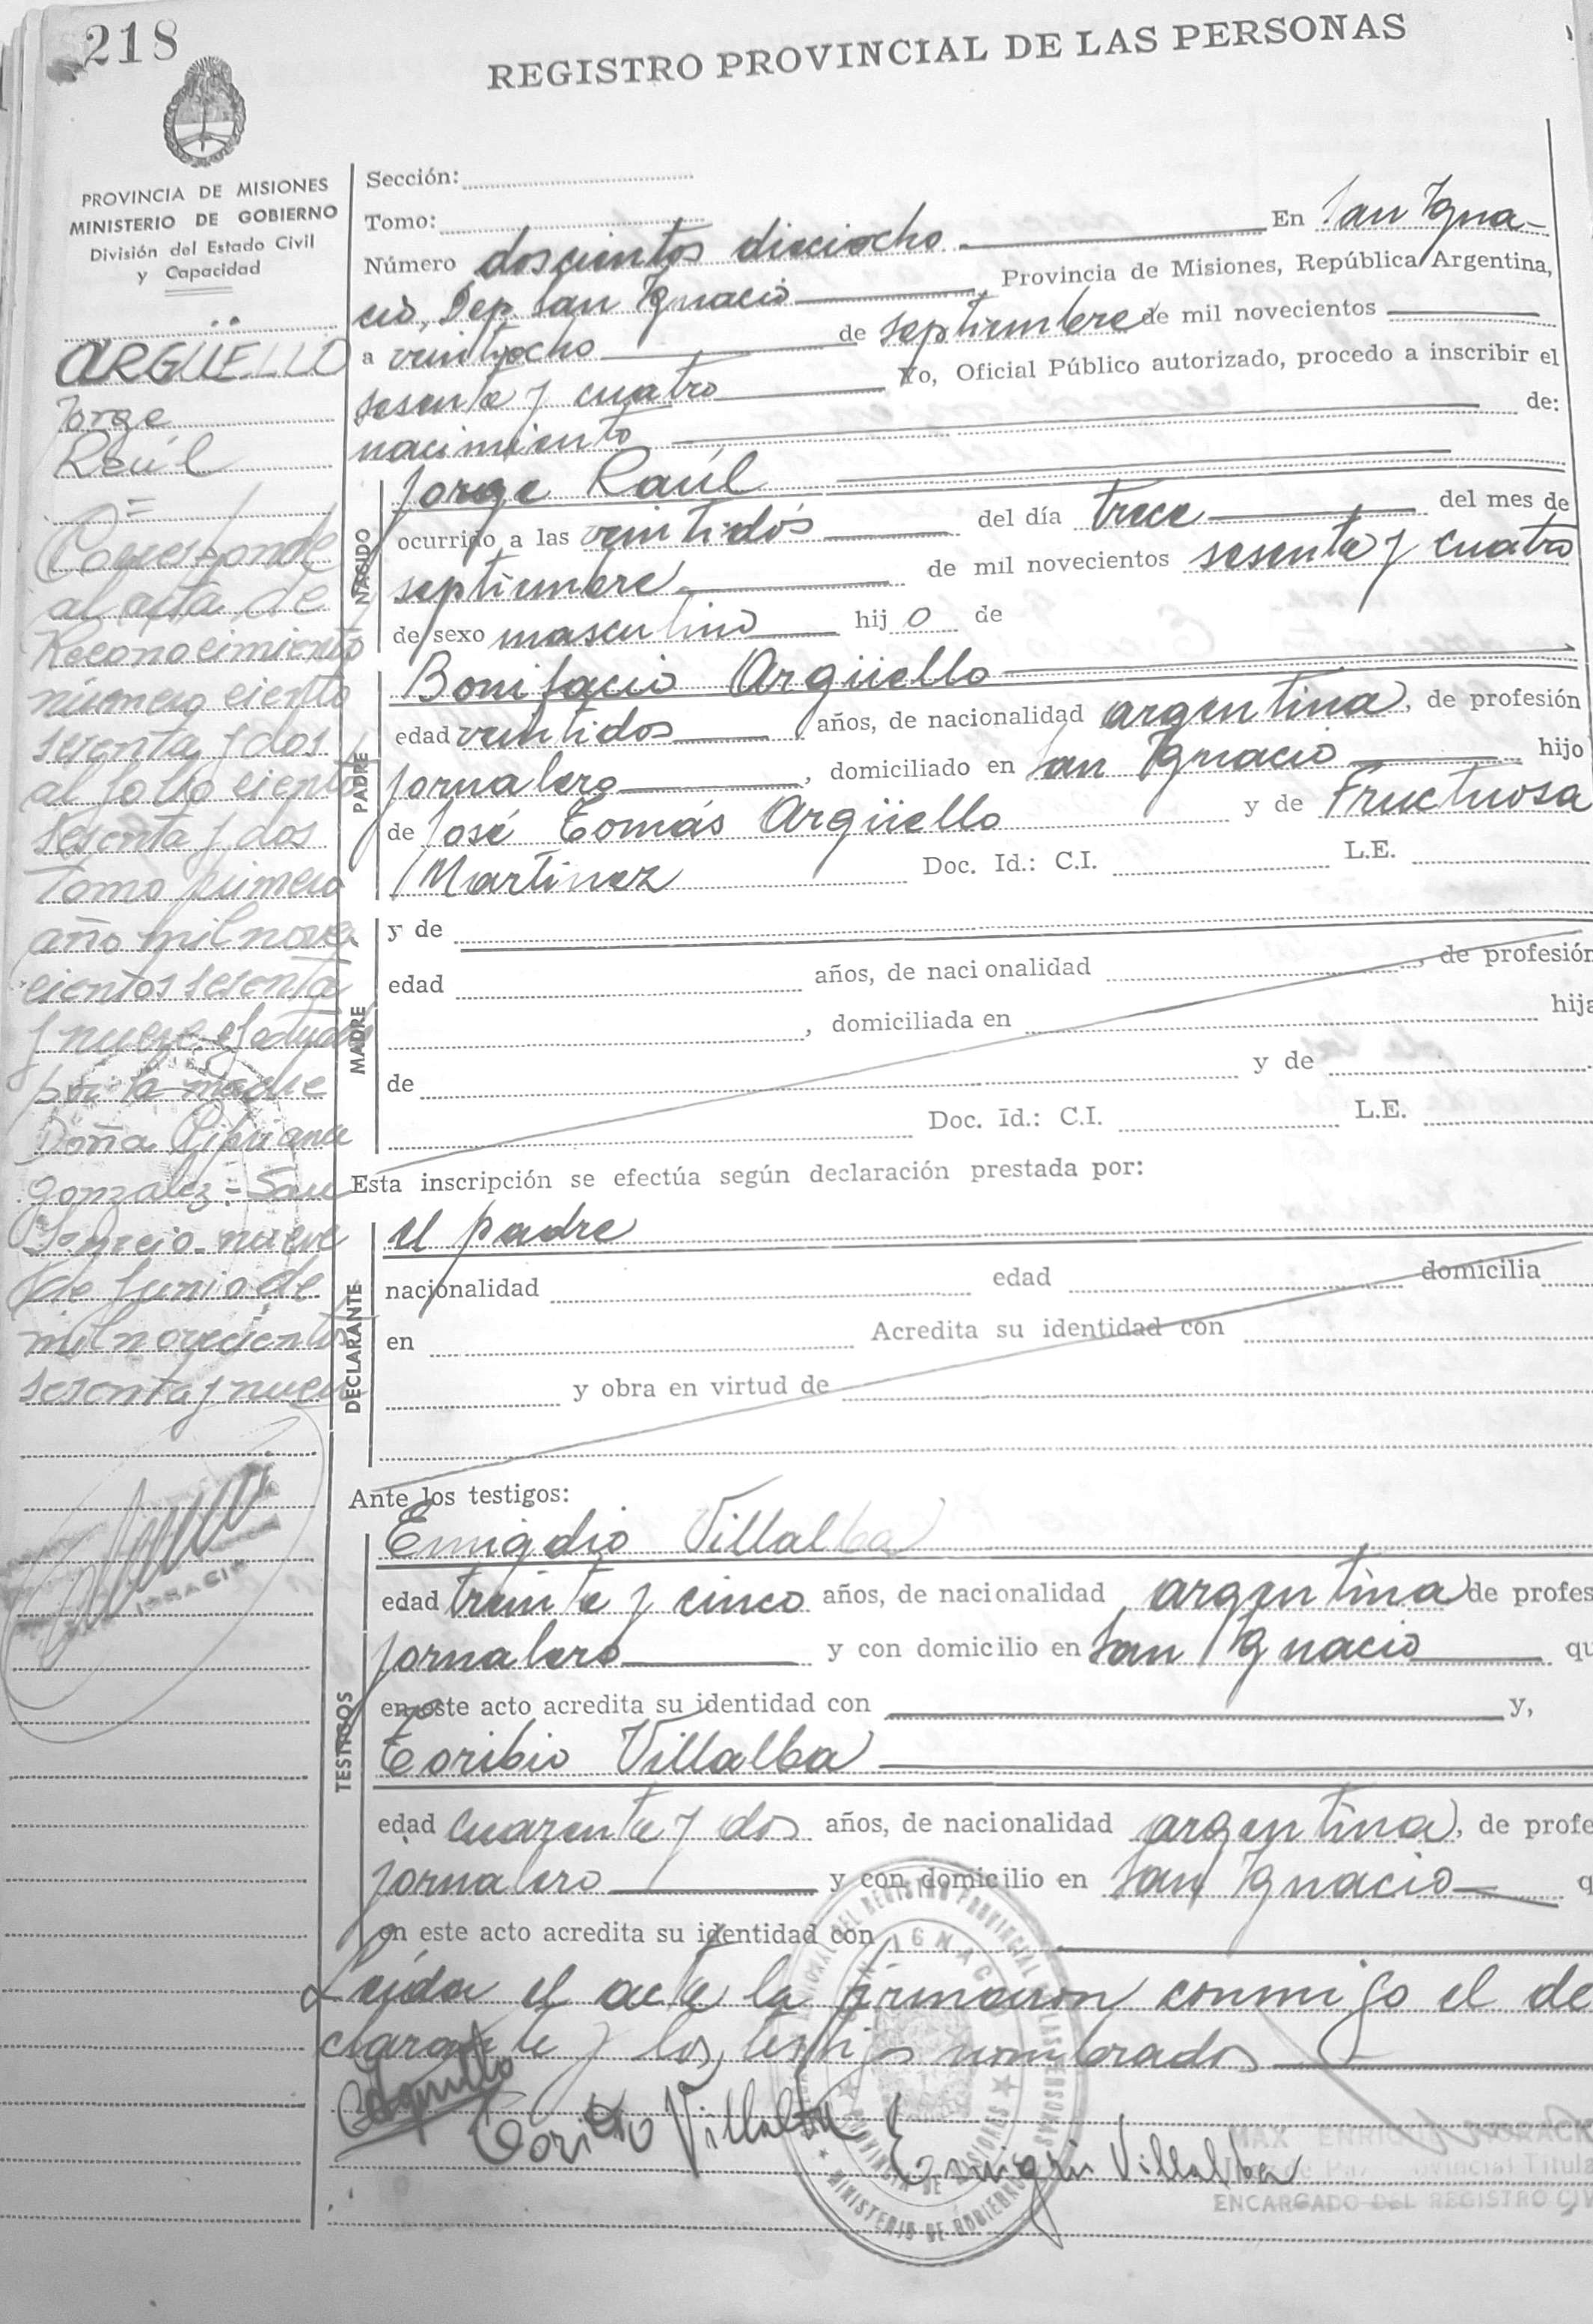 218
REGISTRO PROVINCIAL DE LAS PERSONAS
PROVINCIA DE MISIONES
MINISTERIO DE GOBIERNO
División del Estado Civil
y Capacidad
ARGÜELLO
Jorge
Raúl
=
Corresponde
al acta de
Reconocimiento
número ciento
sesenta y dos
al folio ciento
sesenta y dos
Tomo primero
año mil nove
cientos sesenta
y nueve efectuado
por la madre
Doña
Gonzalez = San
Ignacio - nueve
de Junio de
mil novecientos
sesenta y nueve
IGNACIO
Sección:
Tomo:
Número doscientos dieciocho En San Igna-
cio, Dep. San Ignacio , Provincia de Misiones, República Argentina,
a veintiocho de septiembre de mil novecientos
sesenta y cuatro Yo, Oficial Público autorizado, procedo a inscribir el
nacimiento de:
NACIDO
Jorge Raúl
ocurrido a las veintidós del día trece del mes de
septiembre de mil novecientos sesenta y cuatro
de sexo masculino hij o de
PADRE
Bonifacio Argüello
edad veintidos años, de nacionalidad argentina, de profesión
jornalero , domiciliado en San Ignacio hijo
de José Tomás Argüello y de Fructuosa
Martinez Doc. Id.: C.I. L.E.
MADRE
y de
edad años, de nacionalidad , de profesión
, domiciliada en hija
de y de
Doc. Id.: C.I. L.E.
Esta inscripción se efectúa según declaración prestada por:
DECLARANTE
el padre
nacionalidad edad domicilia
en Acredita su identidad con
y obra en virtud de
Ante los testigos:
TESTIGOS
Emigdio Villalba
edad treinta y cinco años, de nacionalidad argentina de profes
jornalero y con domicilio en San Ignacio qu
en este acto acredita su identidad con y,
Toribio Villalba
edad cuarenta y dos años, de nacionalidad argentina, de profe
jornalero y con domicilio en San Ignacio q
en este acto acredita su identidad con
Leída el acta la firmaron conmigo el de
clarante y los testigos nombrados
Toribio Villalba
Villalba
MAX ENRIQUE
Provincial Titula
ENCARGADO DEL REGISTRO CIV
DEL REGISTRO PROVINCIAL DE LAS PERSONAS
SAN IGNACIO
PROVINCIA DE MISIONES
MINISTERIO DE GOBIERNO